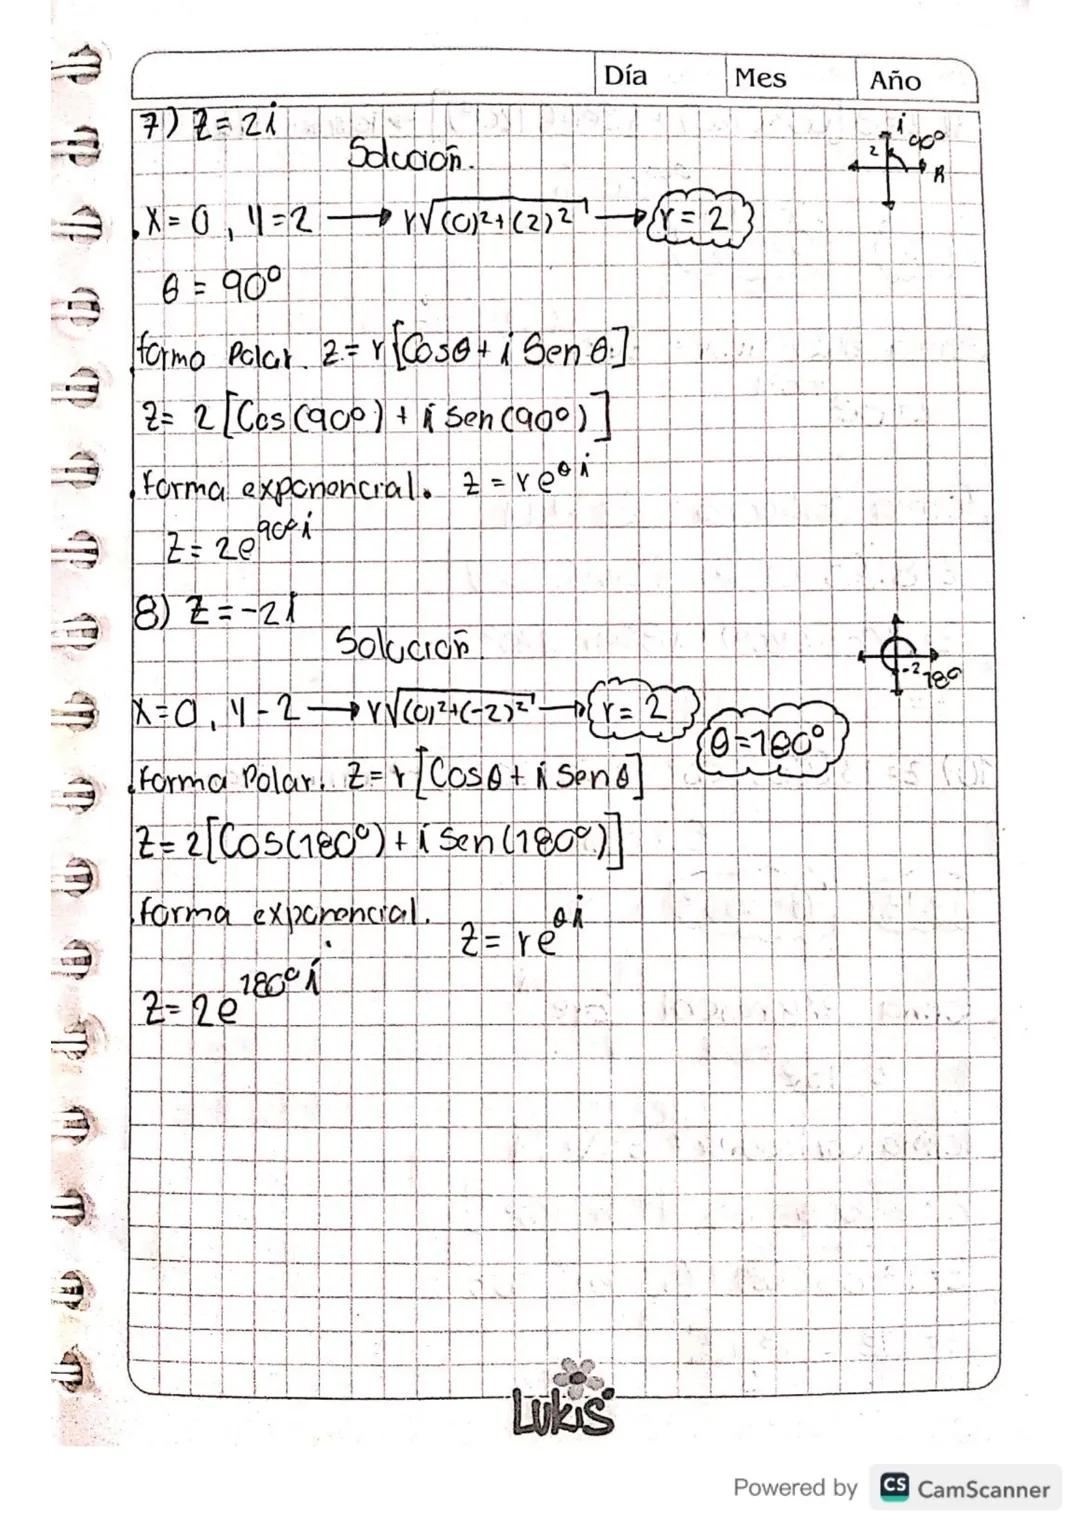 Día Mes Año
7) z = 2i
i 90°
2
R
Solución.
x = 0, y = 2 → r√(0)²+(2)² → r = 2
θ = 90°
forma Polar. z = r[Cosθ + i Sen θ]
z = 2[Cos(90°) + i Sen(90°)]
Forma exponencial. z = re^θi
z = 2e^90°i
8) z = -2i
Solución.
-2 180
x = 0, y - 2 → r√(0)²+(-2)² → r = 2
θ = 180°
Forma Polar. z = r[Cosθ + i Senθ]
z = 2[Cos(180°) + i Sen(180°)]
forma exponencial.
z = re^θi
z = 2e^180°i
Lukis
Powered by CS CamScanner